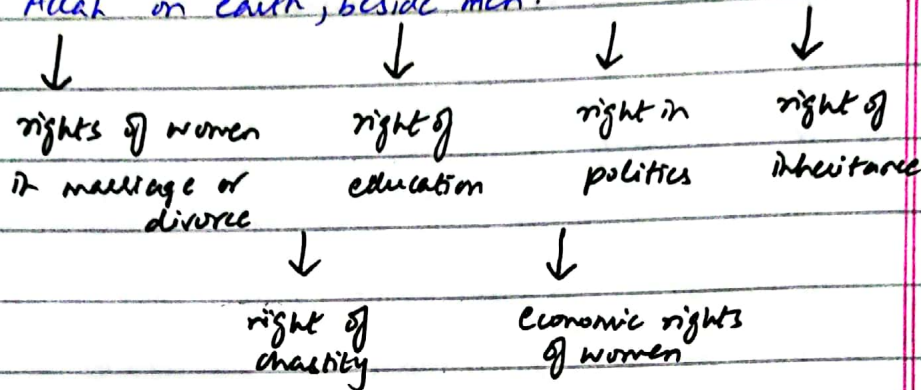 Allah on earth, beside men.
rights of women
in marriage or
divorce
right of
education
right in
politics
right of
inheritance
right of
chastity
economic rights
of women